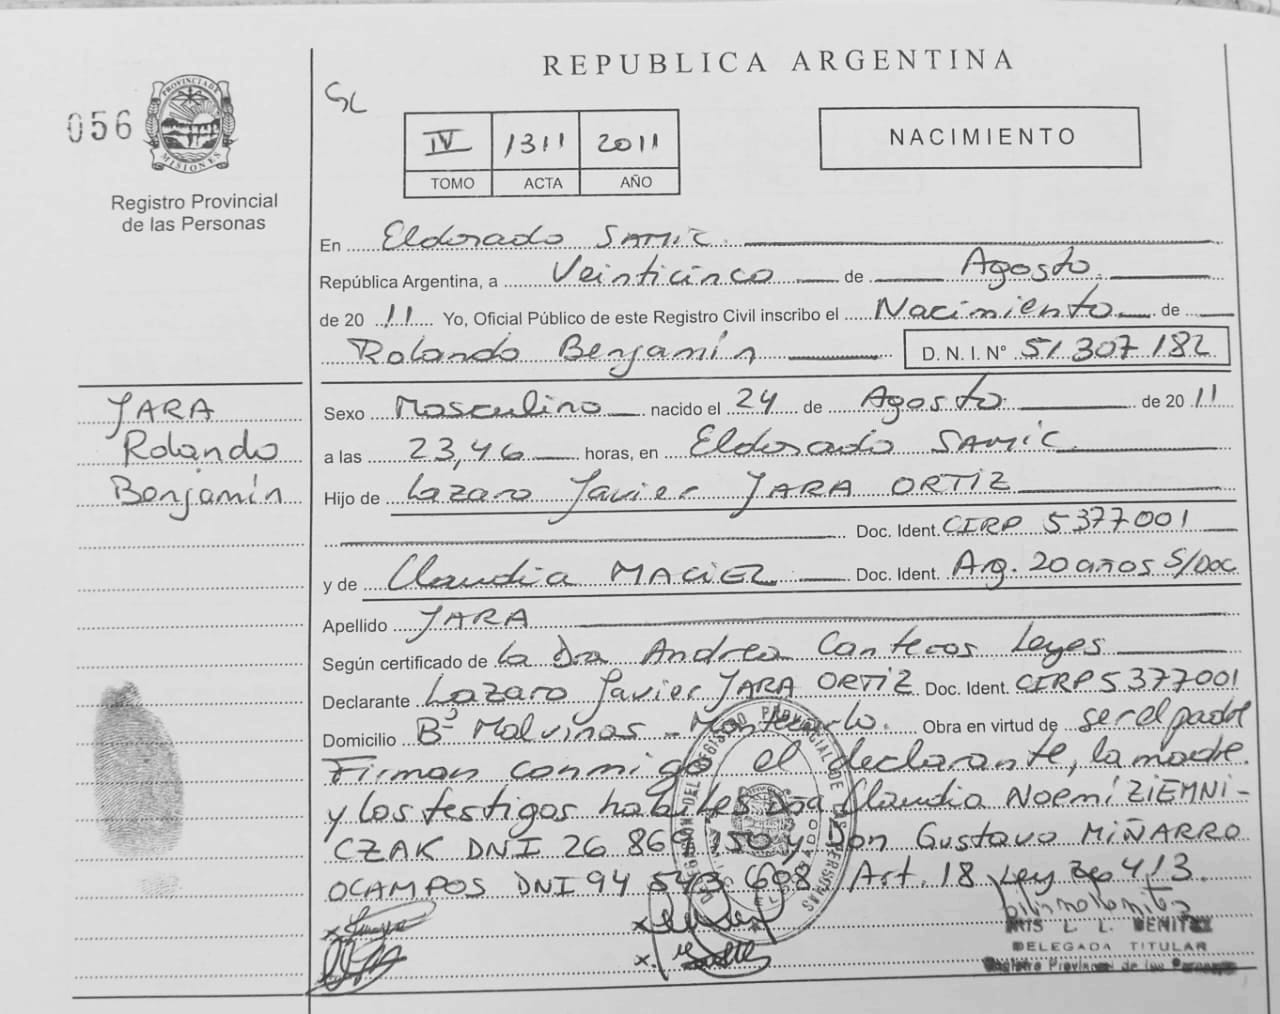 REPUBLICA ARGENTINA
056
PROVINCIA DE MISIONES
Registro Provincial
de las Personas
SL
IV 1311 2011
TOMO ACTA AÑO
NACIMIENTO
En Eldorado SAMIC
República Argentina, a Veinticinco de Agosto
de 2011 Yo, Oficial Público de este Registro Civil inscribo el Nacimiento de
Rolando Benjamín D. N. I. Nº 51 307 182
JARA
Rolando
Benjamín
Sexo Masculino nacido el 24 de Agosto de 2011
a las 23,46 horas, en Eldorado SAMIC
Hijo de Lazaro Javier JARA ORTIZ
Doc. Ident. CIRP 5377001
y de Claudia MACIEL Doc. Ident. Arg. 20 años S/Doc
Apellido JARA
Según certificado de La Dra Andrea Canteros Leyes
Declarante Lazaro Javier JARA ORTIZ Doc. Ident. CIRP 5377001
Domicilio Bº Malvinas - Montecarlo. Obra en virtud de ser el padre
Firman conmigo el declarante, la madre
y los testigos habiles Dña Claudia Noemí ZIEMNI-
CZAK DNI 26 869 150 y Don Gustavo MIÑARRO
OCAMPOS DNI 94 543 608 Art. 18 Ley 26413.
L. L. BENITEZ
DELEGADA TITULAR
Registro Provincial de las Personas